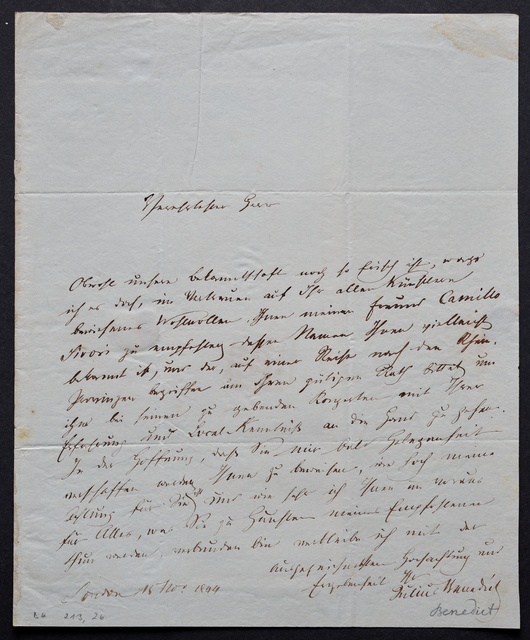 Verehrtester Herr
Obwohl unsere Bekanntschaft noch so frisch ist, wage
ich es doch, im Vertrauen auf Ihr allen Künstlern
bewiesenes Wohlwollen, Ihnen meinen Freund Camillo
Sivori zu empfehlen, dessen Namen Ihnen vielleicht
bekannt ist, und der, auf einer Reise nach den Rhein-
Provinzen begriffen um Ihren gütigen Rath bittet, um
ihm bei seinen zu gebenden Konzerten mit Ihrer
Erfahrung und Local-Kenntniß an die Hand zu gehen.
In der Hoffnung, daß Sie mir bald Gelegenheit
verschaffen werden, Ihnen zu beweisen, wie hoch meine
Achtung für Sie ist und wie sehr ich Ihnen im voraus
für Alles, was Sie zu Gunsten meines Empfohlenen
thun werden, verbunden bin verbleibe ich mit der
ausgezeichnetsten Hochachtung und
Ergebenheit Ihr
London 18 Nov 1844 Julius Benedict
213, 24 Benedict